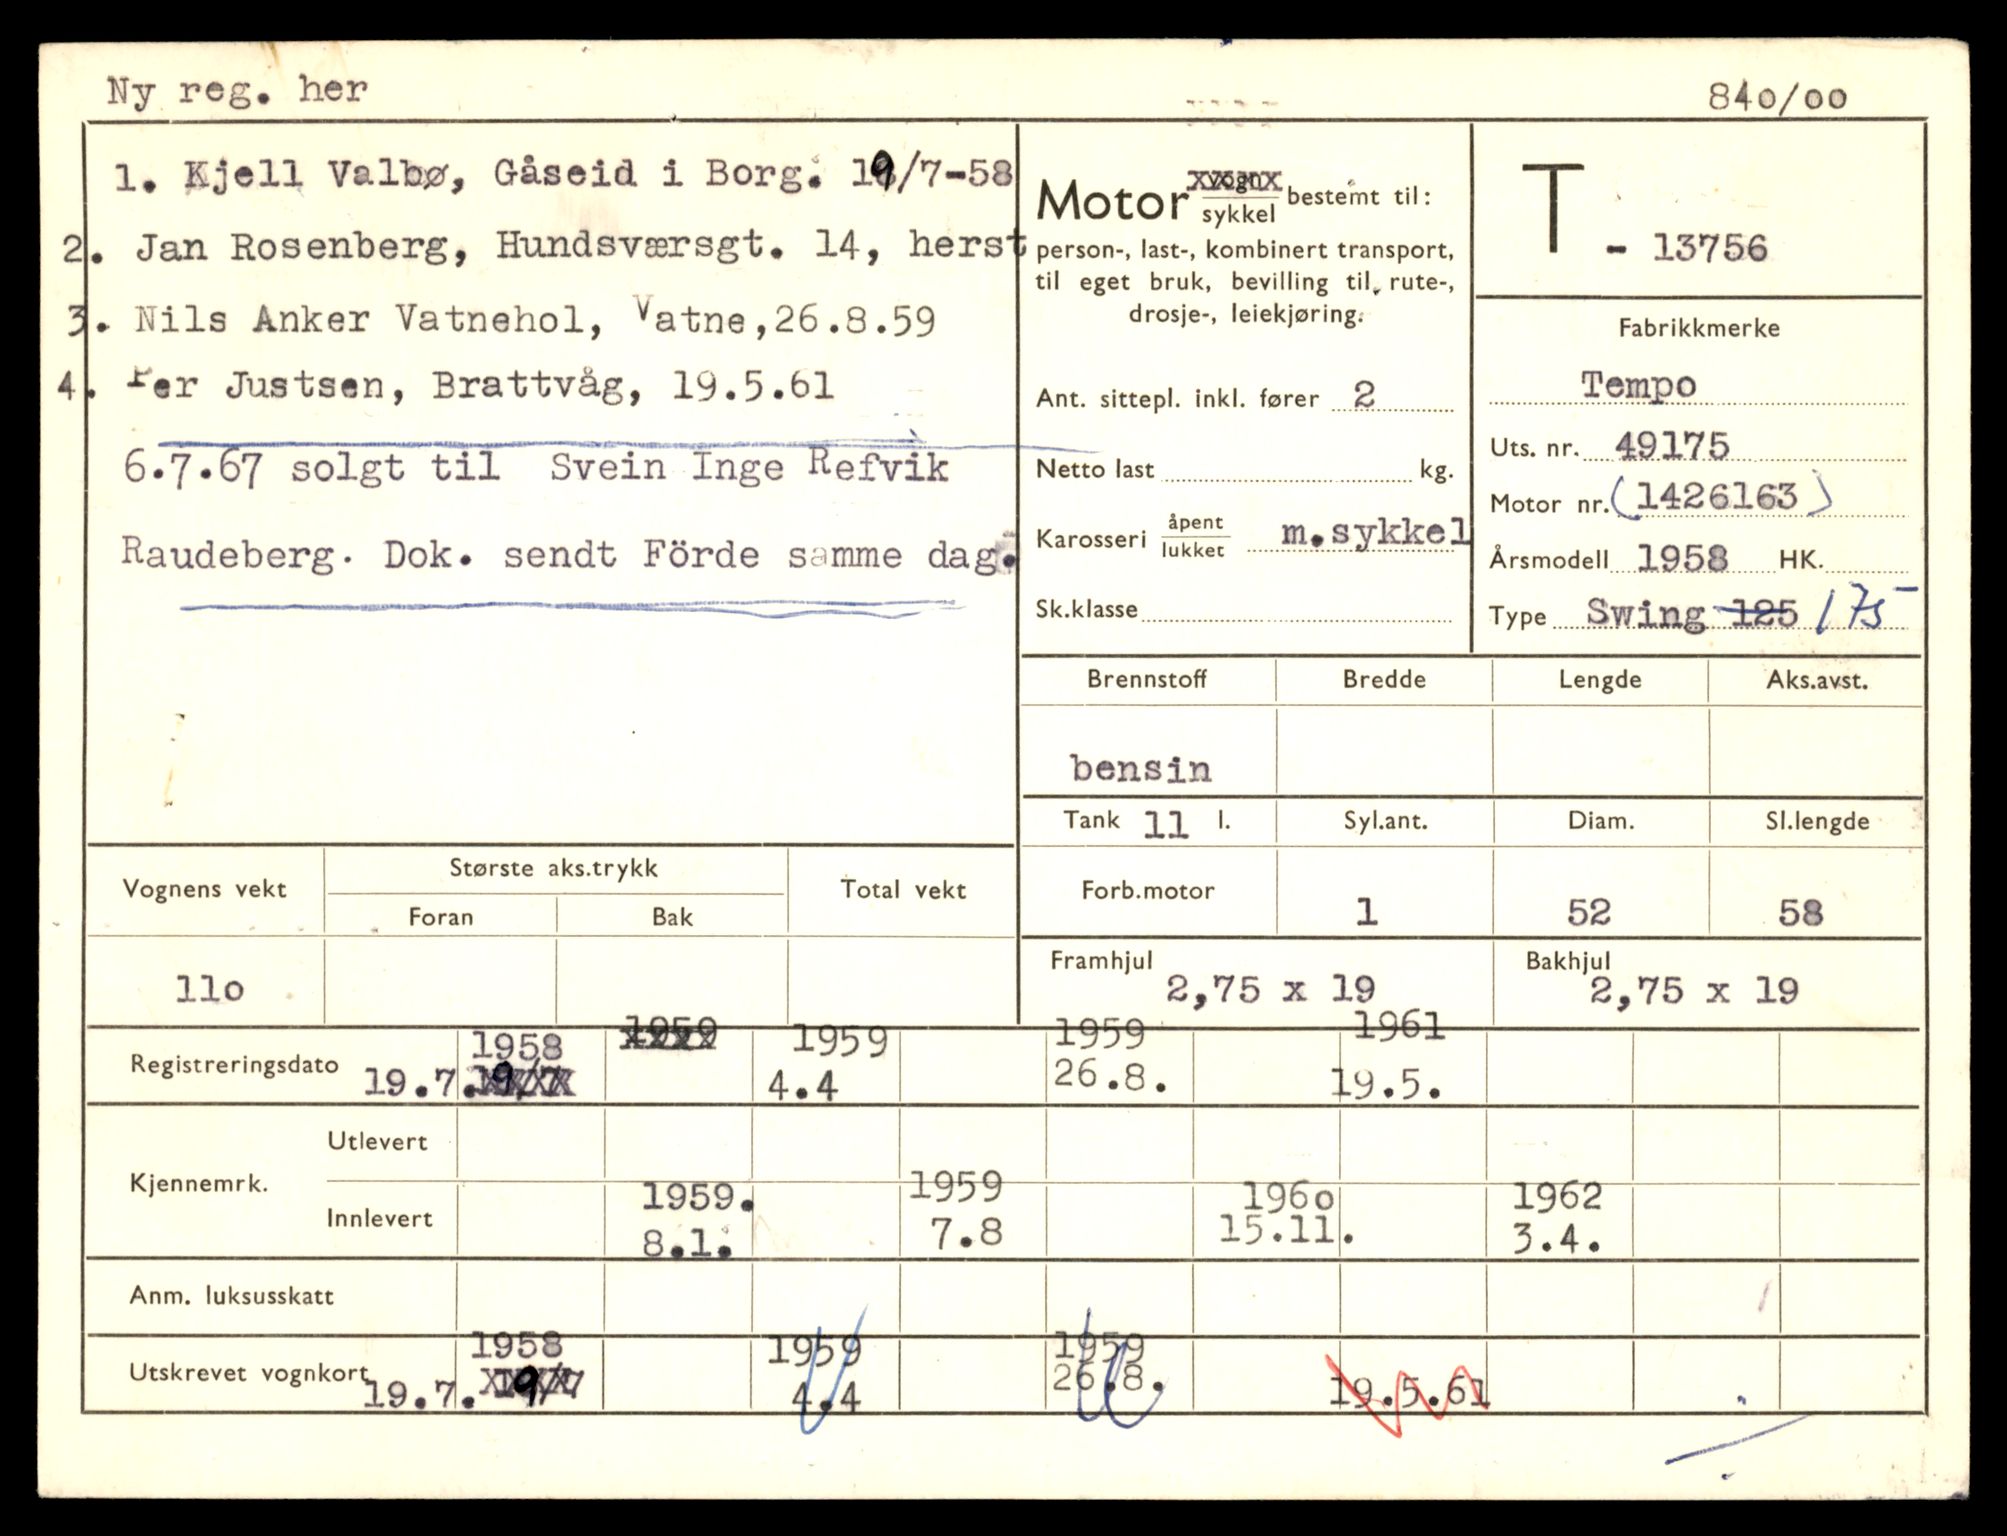 Ny reg. her
840/00
1. Kjell Valbø, Gåseid i Borg. 19/7-58
2. Jan Rosenberg, Hundsværsgt. 14, herst
3. Nils Anker Vatnehol, Vatne,26.8.59
4. Per Justsen, Brattvåg, 19.5.61
6.7.67 solgt til Svein Inge Refvik
Raudeberg. Dok. sendt Förde samme dag.
Motor vogn/sykkel bestemt til:
person-, last-, kombinert transport,
til eget bruk, bevilling til rute-,
drosje-, leiekjøring.
Ant. sittepl. inkl. fører 2
Netto last kg.
Karosseri åpent/lukket m.sykkel
Sk.klasse
T - 13756
Fabrikkmerke
Tempo
Uts. nr. 49175
Motor nr. (1426163)
Årsmodell 1958 HK.
Type Swing 125 175
Brennstoff Bredde Lengde Aks.avst.
bensin
Tank 11 l. Syl.ant. Diam. Sl.lengde
Forb.motor 1 52 58
Framhjul 2,75 x 19 Bakhjul 2,75 x 19
Vognens vekt Største aks.trykk Total vekt
Foran Bak
110
1958 1959 1959 1959 1961
Registreringsdato 19.7. 19/7 4.4 26.8. 19.5.
Kjennemrk.
Utlevert
1959. 1959 1960 1962
Innlevert 8.1. 7.8 15.11. 3.4.
Anm. luksusskatt
1958 1959 1959
Utskrevet vognkort 19.7. 19/7 4.4 26.8. 19.5.61